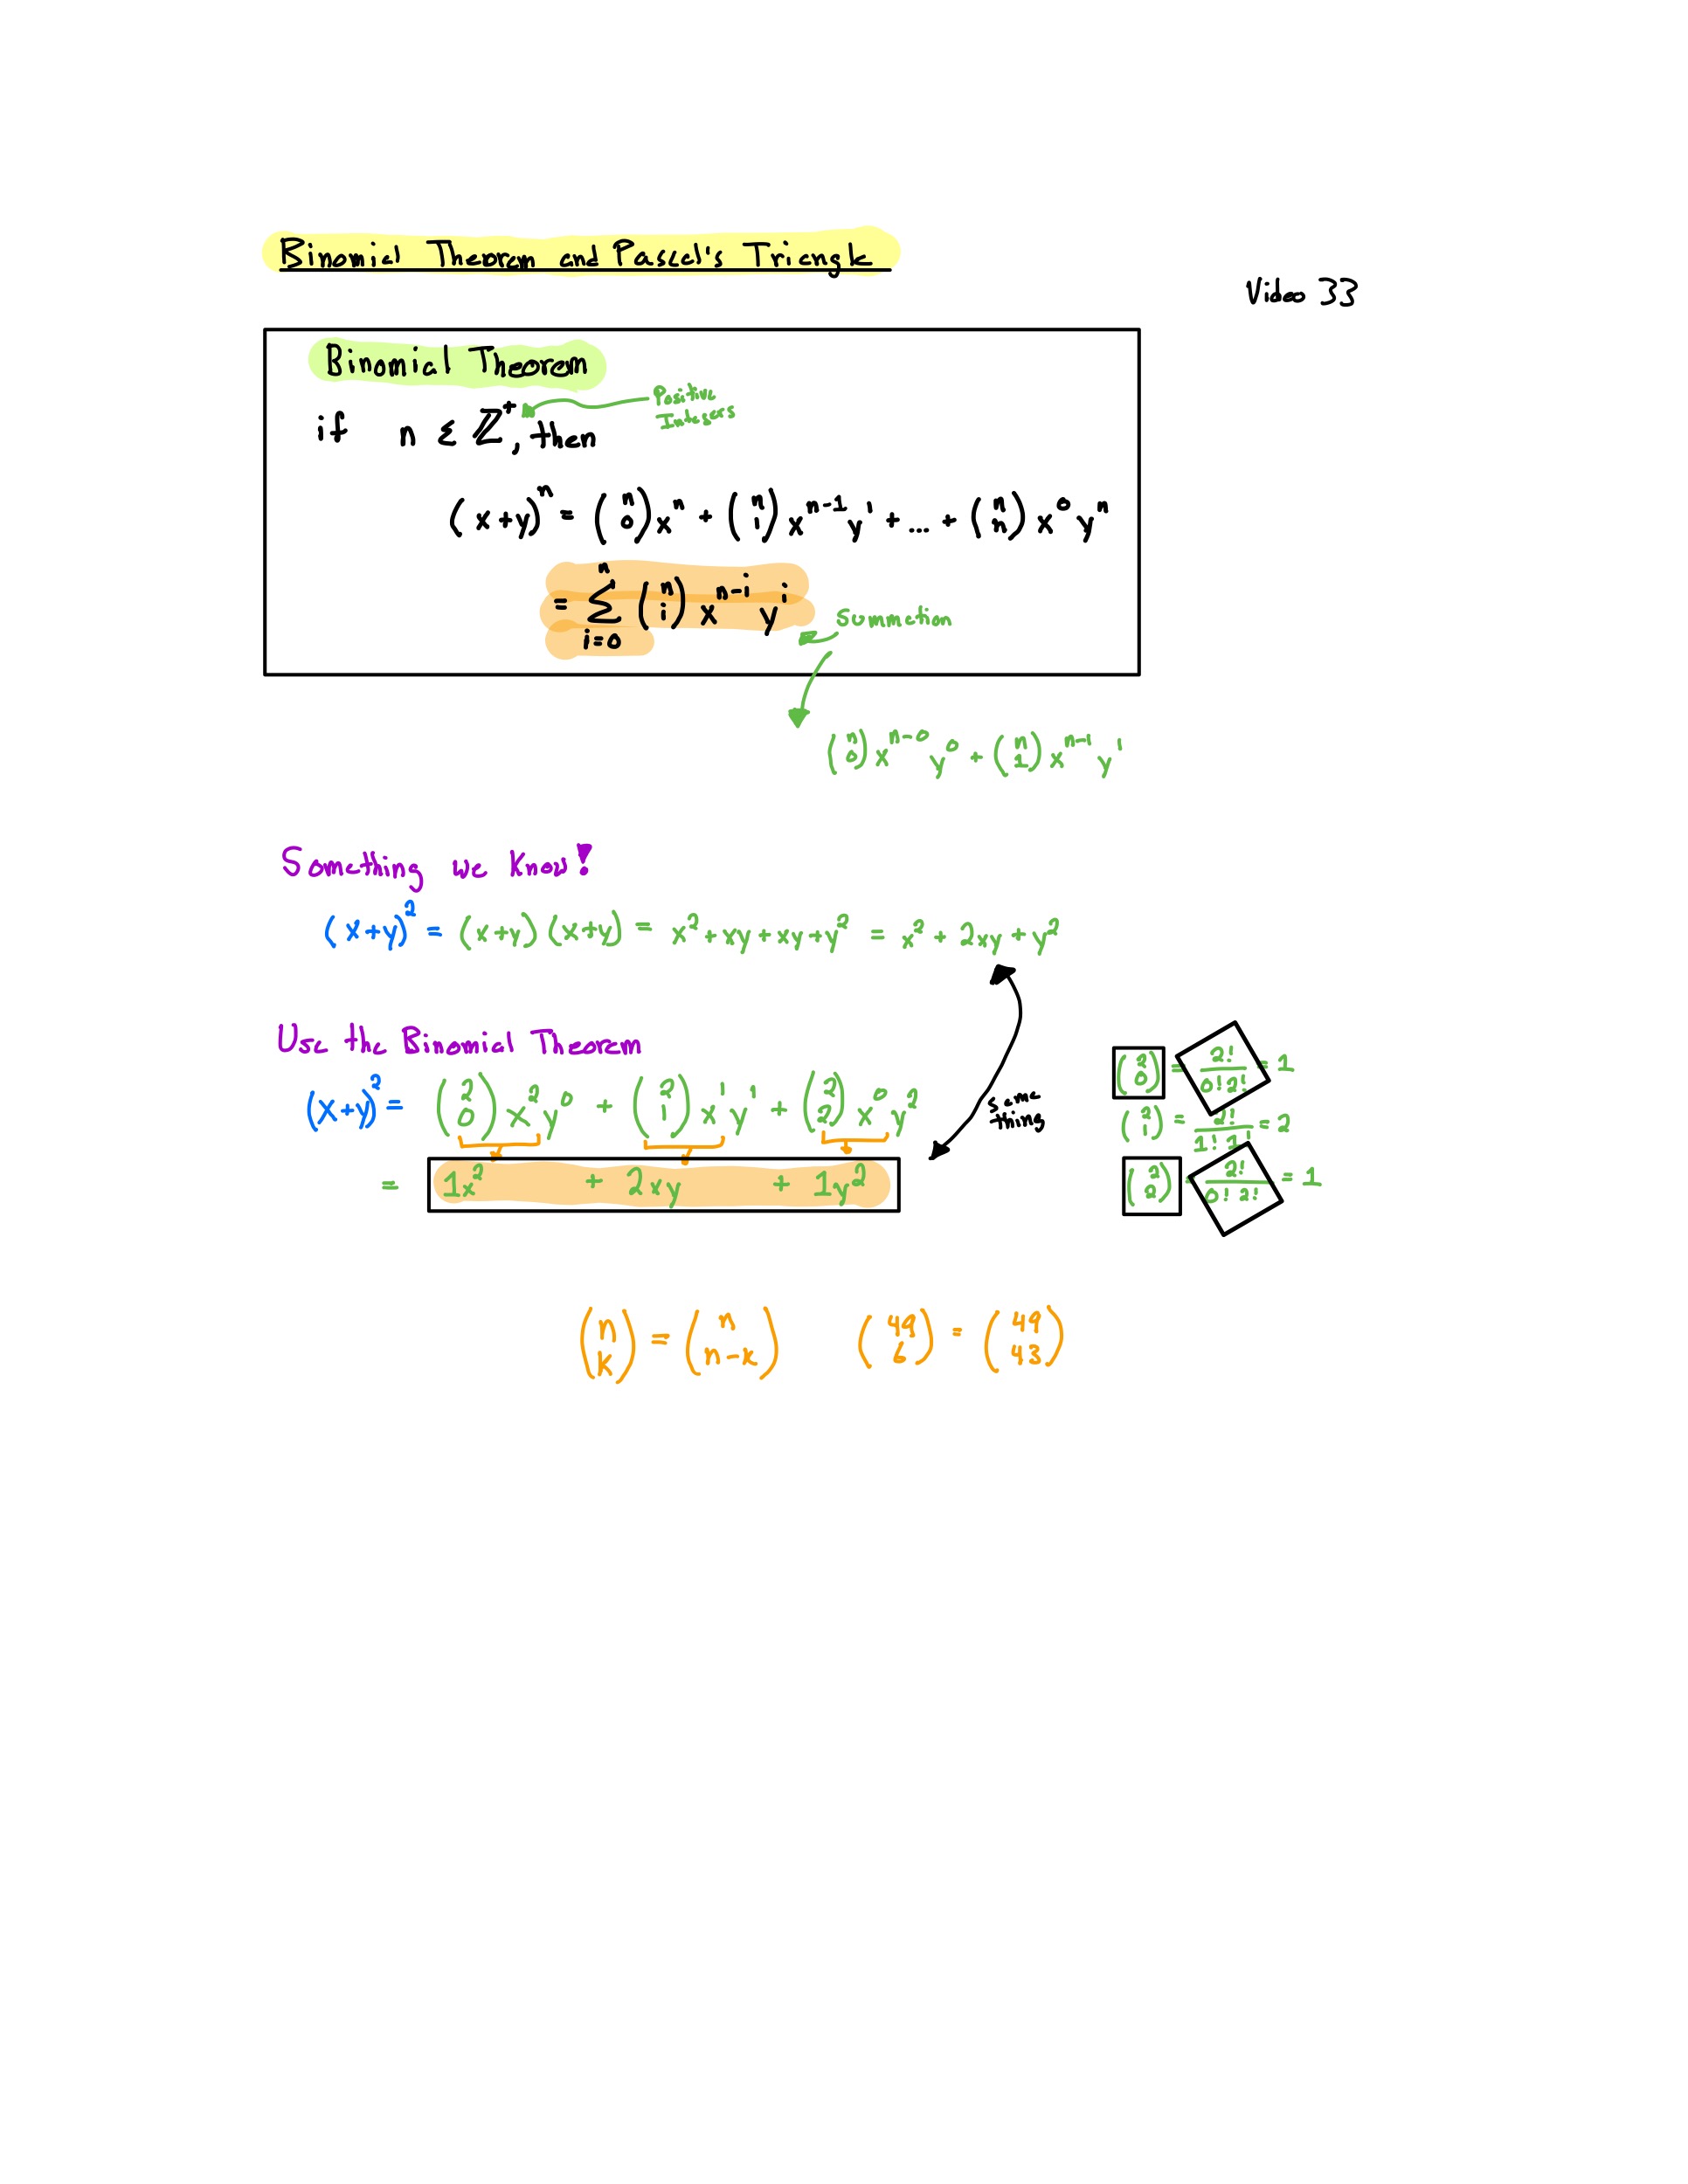 Binomial Theorem and Pascal's Triangle
Video 33
Binomial Theorem
if n ε ℤ⁺, then
Positive
Integers
(x+y)ⁿ = (n 0)xⁿ + (n 1)xⁿ⁻¹y¹ + ... + (n n)x⁰yⁿ
= Σ_{i=0}^{n} (n i) x^{n-i} y^i
Summation
(n 0)x^{n-0} y⁰ + (n 1)x^{n-1} y¹
Something we Know!
(x+y)² = (x+y)(x+y) = x²+xy+xy+y² = x² + 2xy + y²
Use the Binomial Theorem
(x+y)² = (2 0)x²y⁰ + (2 1)x¹y¹ + (2 2)x⁰y²
= 1x² + 2xy + 1y²
same
thing
(2 0) = 2!/0!2! = 1
(2 1) = 2!/1!1! = 2
(2 2) = 2!/0!2! = 1
(n k) = (n n-k) (49 6) = (49 43)